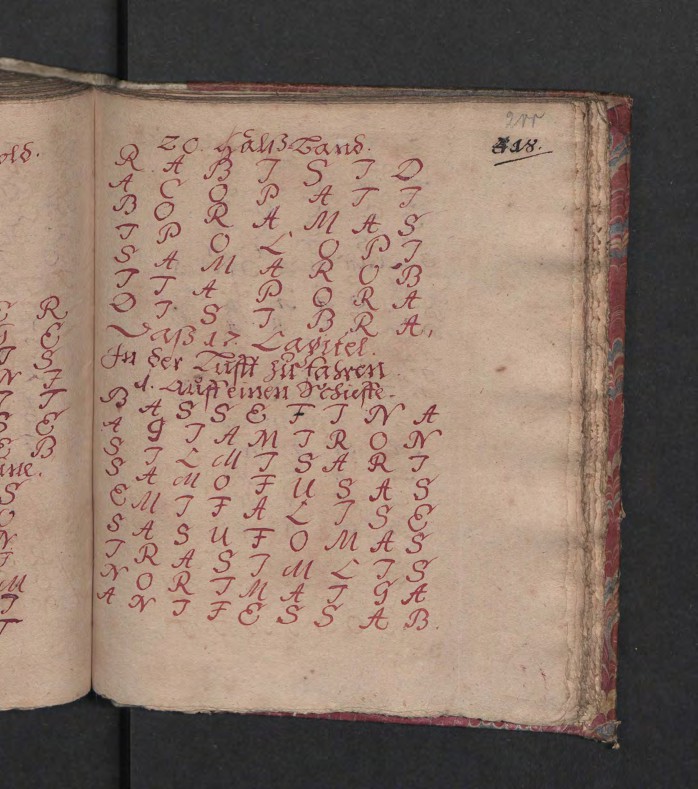 218.
20. Halß Band.
R A B I S I D
A C O P A T I
B O R A M A S
I P O L O P I
S A M A R O B
I T A P O R A
D I S I B R A.
Daß 17. Capitel.
In der Lufft zu fahren
1. Auff einen Schieffe.
B A S S E F I N A
A G I A M I R O N
S I L M I S A R I
S A M O F U S A S
E M I F A L I S E
S A S U F O M A S
I R A S I M L I S
N O R I M A I G A
A N I F E S S A B.